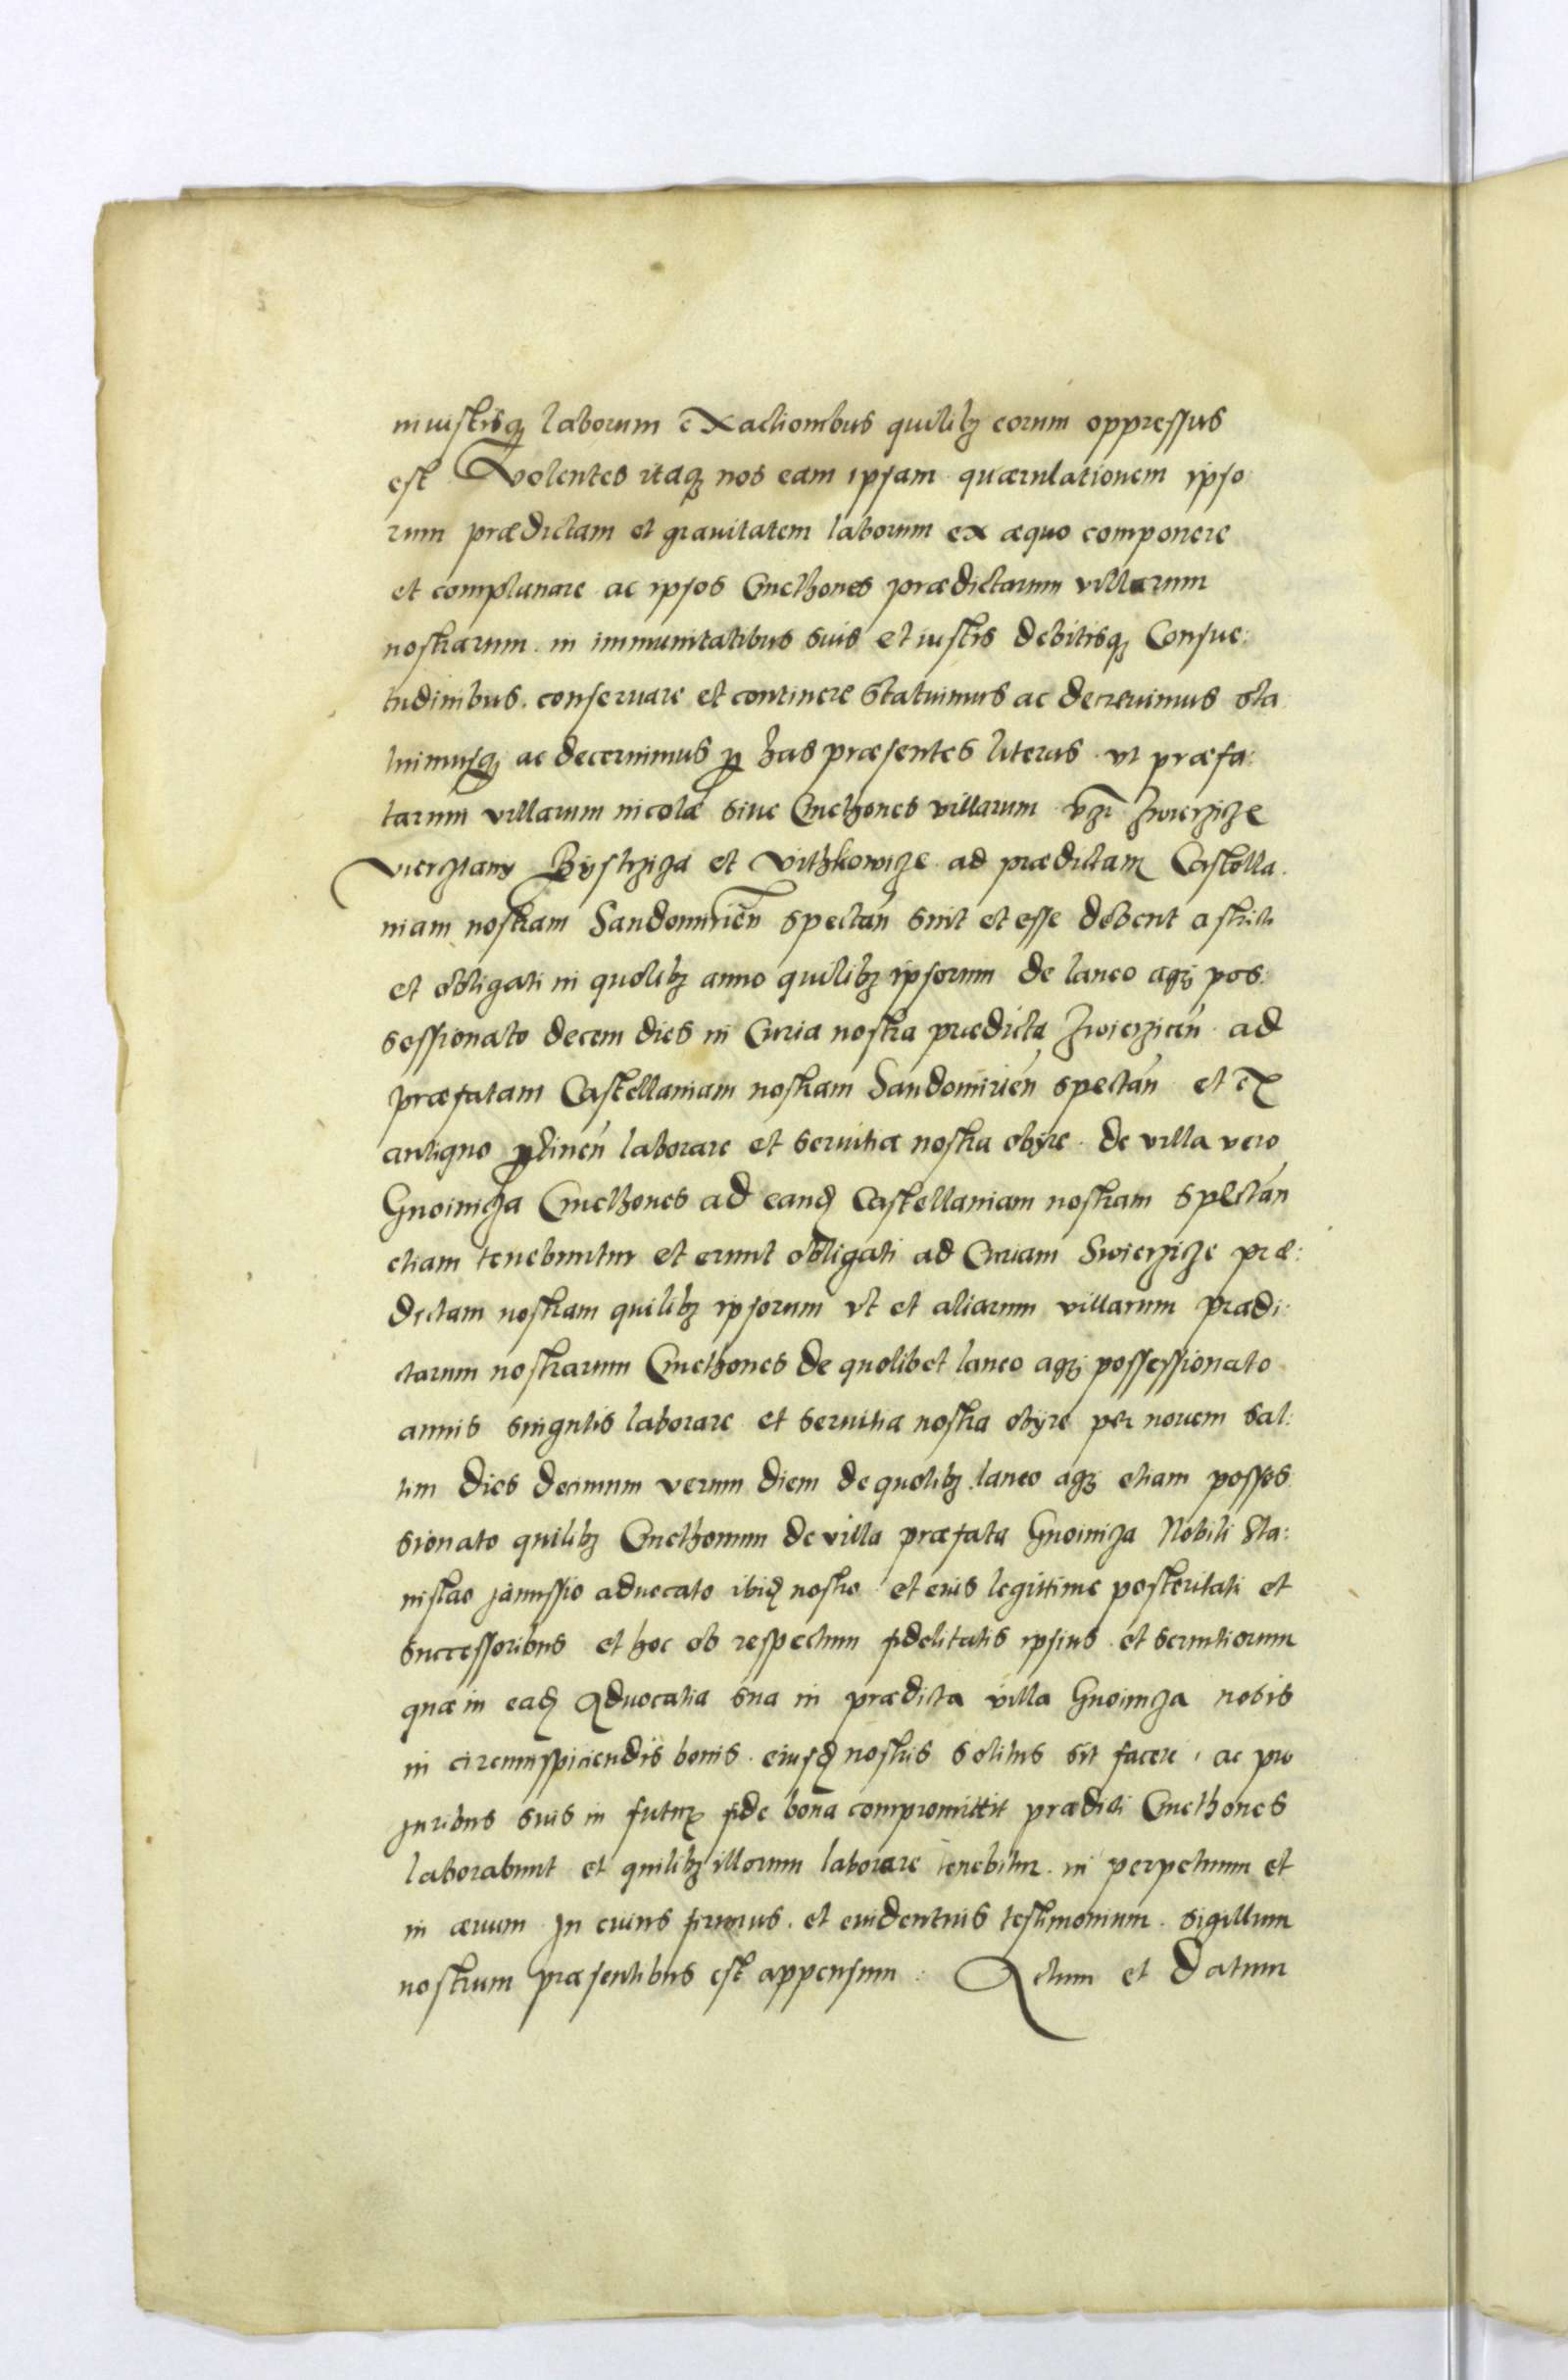 iniustisq₃ laborum eXactionibus quilib₃ eorum oppressus
est Volentes itaq₃ nos eam ipsam quærulationem ipso
rum prædictam et grauitatem laborum ex æquo componere
et complanare ac ipsos Cmethones prædictarum villarum
nostrarum in immunitatibus suis et iustis debitisq₃ Consue:
tudinibus. conseruare et continere Statuimus ac decreuimus sta
tuimusq₃ ac decernimus ꝑ has præsentes literas vt præfa:
tarum villarum incolæ siue Cmethones villarum vz Zwierzicze
VierzTany Bystrzicza et Vithkowicze ad prædictam Castella.
niam nostram Sandomirień spectań sint et esse debent astricti
et obligati in quolib₃ anno quilib₃ ipsorum de laneo agri pos:
sessionato decem dies in Curia nostra prædicta Zwierzicen ad
præfatam Castellaniam nostram Sandomirień spectań et eX
antiquo ꝑtineń laborare et seruitia nostra obyre de villa vero
Gnoinicza Cmethones ad eand Castellaniam nostram spectań
etiam tenebuntur et erunt obligati ad Curiam Swierzicze præ:
dictam nostram quilib₃ ipsorum vt et aliarum villarum prædi:
ctarum nostrarum Cmethones de quolibet laneo agri possessionato
annis singulis laborare et seruitia nostra obyre per nouem sal:
tim dies decimum verum diem de quolib₃ laneo agri etiam posses
sionato quilib₃ Cmethonum de villa præfata Gnoinicza Nobili Sta:
nislao Janussio aduocato ibid nostro et eius legittime posteritati et
successoribus et hoc ob respectum fidelitatis ipsius et seruitiorum
quæ in ead Aduocatia sua in prædicta villa Gnoinicza nobis
in circumspiciendis bonis eiusd nostris solitus sit facere, ac pro
Juribus suis in futur fide bona compromittit prædicti Cmethones
laborabunt et quilib₃ illorum laborare tenebitur in perpetuum et
in æuum In cuius firmius. et euidentius testimonium. sigillum
nostrum præsentibus est appensum. Actum et Datum